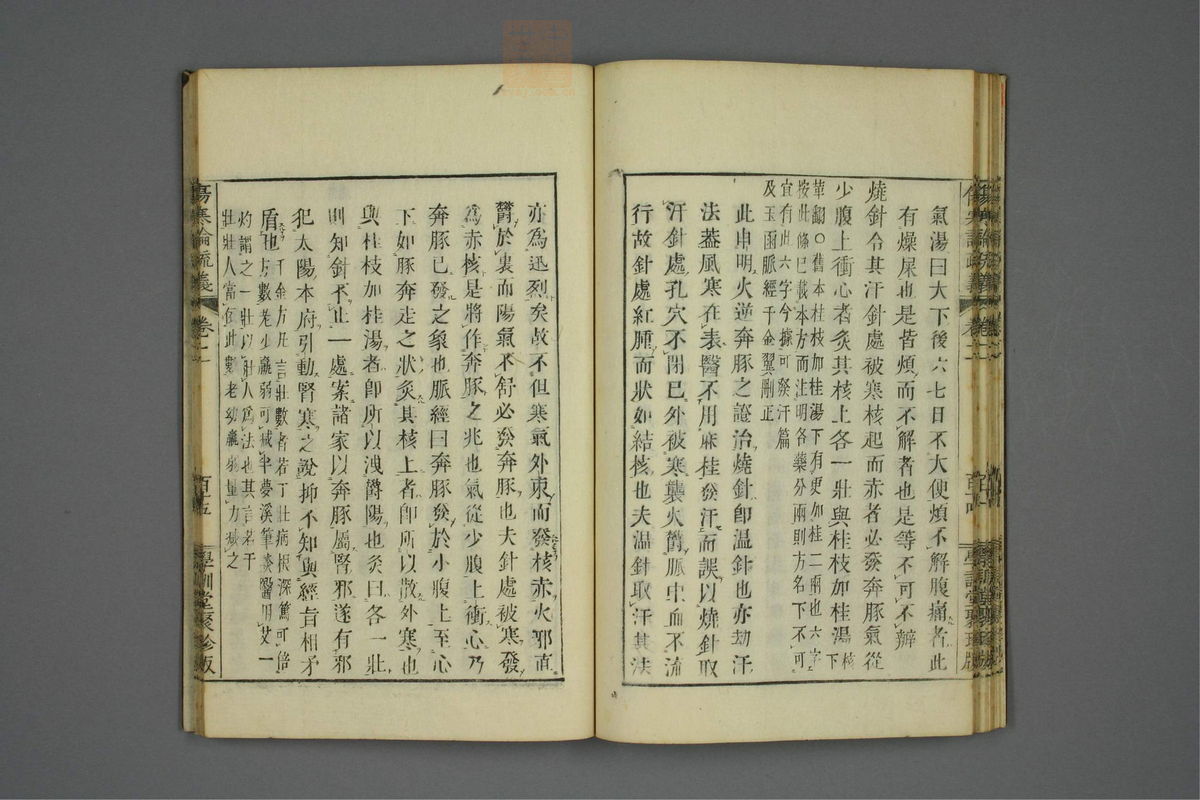 氣湯曰大下後六七日不大便煩不解腹痛者此
有燥屎也是皆煩而不解者也是等不可不辯
燒針令其汗針處被寒核起而赤者必發奔豚氣從
少腹上衝心者灸其核上各一壯與桂枝加桂湯核下
華韻○舊本桂枝加桂湯下有更加桂二兩也六字
按此條已載本方而注明各藥分兩則方名下不可
宜有此六字今據可發汗篇
及玉函脈經千金翼刪正
此申明火逆奔豚之證治燒針卽温針也亦劫汗
法蓋風寒在表醫不用麻桂發汗而誤以燒針取
汗針處孔穴不閉已外被寒襲火鬱脈中血不流
行故針處紅腫而狀如結核也夫温針取汗其法
亦爲迅烈矣故不但寒氣外束而發核赤火邪直
鬱於裏而陽氣不舒必發奔豚也夫針處被寒發
爲赤核是將作奔豚之兆也氣從少腹上衝心乃
奔豚已發之象也脈經曰奔豚發於小腹上至心
下如豚奔走之狀灸其核上者卽所以散外寒也
與桂枝加桂湯者卽所以洩鬱陽也灸曰各一壯
則知針不止一處案諸家以奔豚屬腎邪遂有邪
犯太陽本府引動腎寒之說抑不知與經旨相矛
盾也千金方凡言壯數者若丁壯病根深篤可倍
方數老少羸弱可減半夢溪筆談醫用艾一
灼謂之一壯以壯人爲法也其言若干
壯壯人當依此數老幼羸弱量力減之
傷寒論疏義
卷二
百五
學訓堂聚珍版